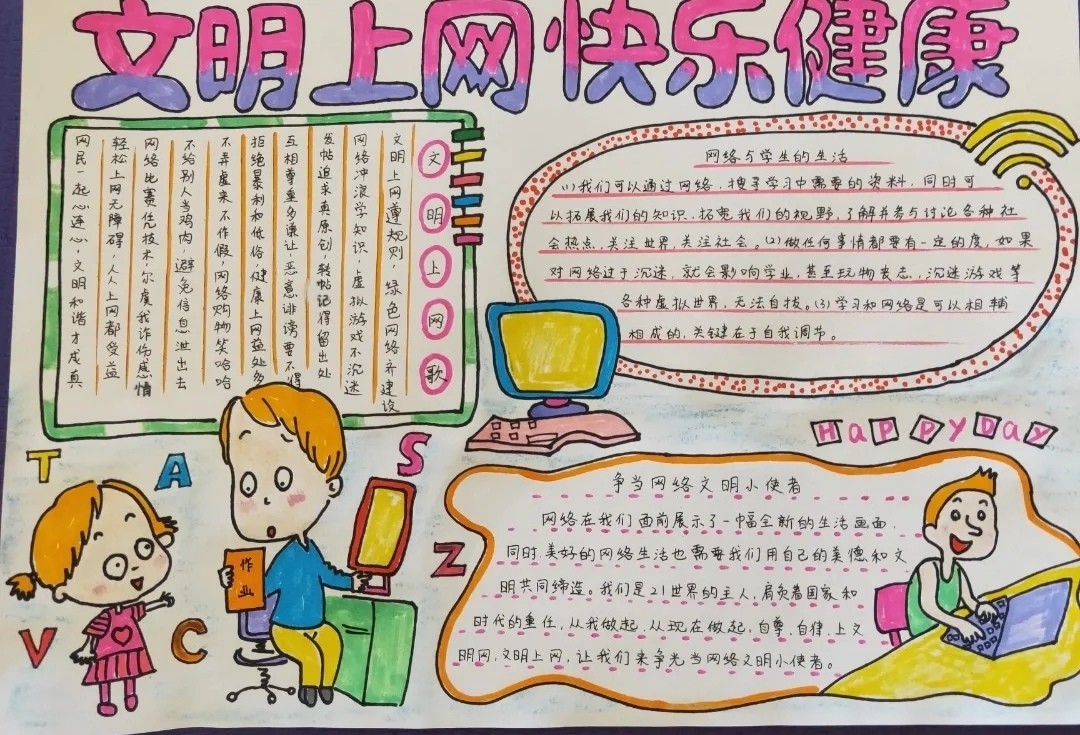 文明上网快乐健康
文明上网歌
文明上网遵规则,绿色网络齐建设
网络冲浪学知识,虚拟游戏不沉迷
发帖追求真原创,转帖记得留出处
互相尊重多谦让,恶意诽谤要不得
拒绝暴利和低俗,健康上网益处多
不弄虚来不作假,网络购物笑哈哈
不给别人当鸡肉,避免信息泄出去
网络比赛任技术,尔虞我诈伤感情
轻松上网无障碍,人人上网都受益
网民一起心连心,文明和谐才成真
网络与学生的生活
(1)我们可以通过网络,搜寻学习中需要的资料,同时可
以拓展我们的知识,拓宽我们的视野,了解并参与讨论各种社
会热点,关注世界,关注社会。(2)做任何事情都要有一定的度,如果
对网络过于沉迷,就会影响学业,甚至玩物丧志,沉迷游戏等
各种虚拟世界,无法自拔。(3)学习和网络是可以相辅
相成的,关键在于自我调节。
HAPPY DAY
T A S
Z
V C
作业
争当网络文明小使者
网络在我们面前展示了一幅全新的生活画面,
同时,美好的网络生活也需要我们用自己的美德和文
明共同缔造。我们是21世界的主人,肩负着国家和
时代的重任,从我做起,从现在做起,自尊,自律,上文
明网,文明上网,让我们来争光当网络文明小使者。